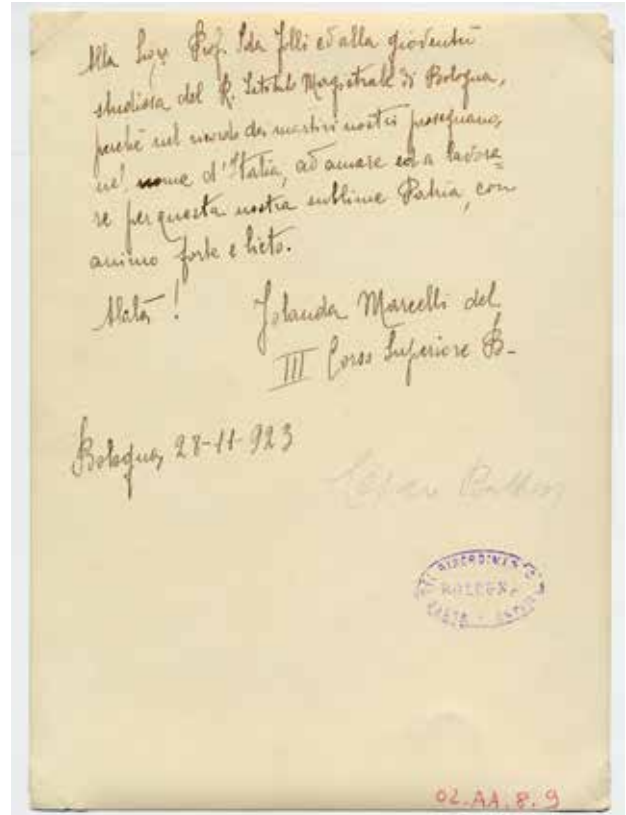 Alla Sig.ra Prof. Ida Folli ed alla gioventù
studiosa del R. Istituto Magistrale di Bologna,
perché nel ricordo dei martiri nostri proseguano,
nel nome d'Italia, ad amare ed a lavora=
re per questa nostra sublime Patria, con
animo forte e lieto.
Alalà! Jolanda Marcelli del
III Corso Superiore B-
Bologna, 28-11-923
BOLOGNA
02.AA.8.9